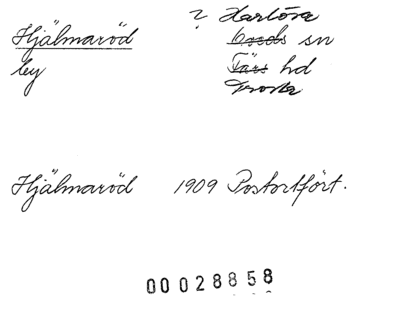 Hjälmaröd ? Harlösa
by sn
Färs hd
Frosta
Hjälmaröd 1909 Postortfört.
00028858